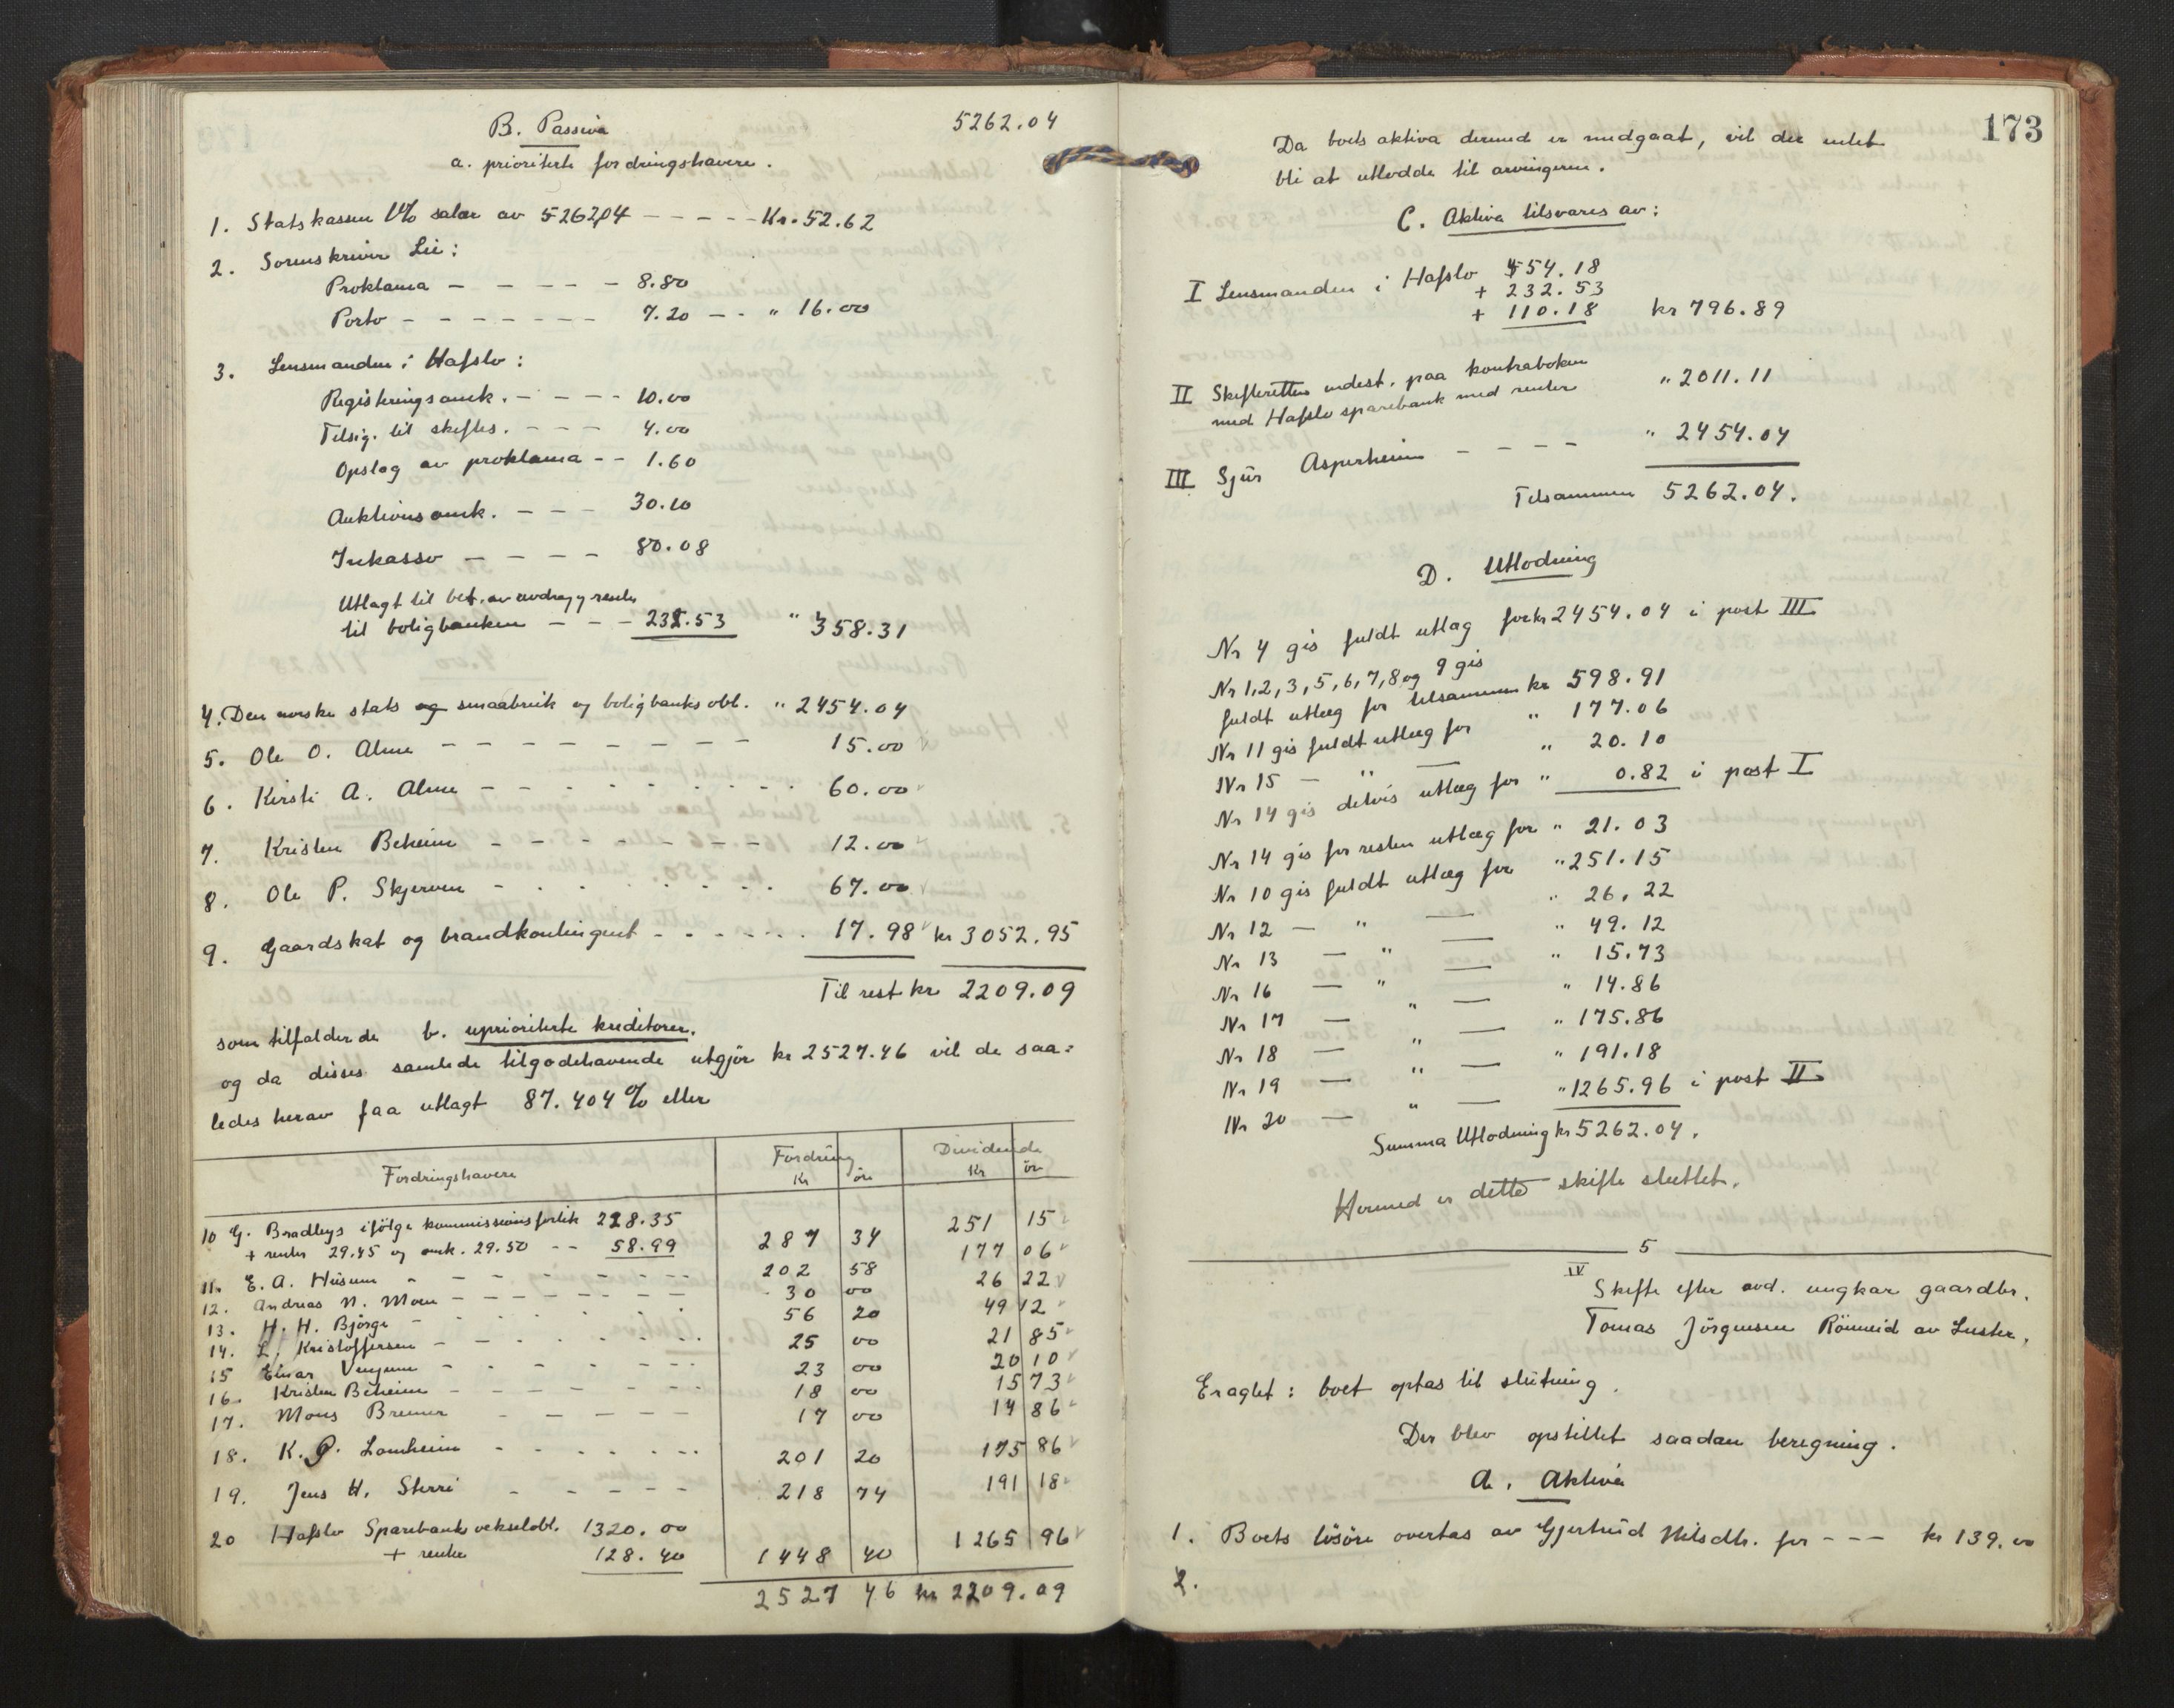 B. Passiva 5262.04
a. prioriterte fordringshavere.
1. Statskassen 1% salær av 5262,04 - - - - - Kr. 52.62
2. Sorenskriver Lie:
Proklama - - - - - 8.80
Porto - - - - - - - 7.20 - - " 16.00
3. Lensmanden i Hafslo:
Registreringsomk. - - - - 10.00
Tilsig. til skiftes. - - - 4.00
Opslag av proklama - - 1.60
Auktionsomk. - - - 30.10
Inkasso - - - - 80.08
Utlagt til bet. av avdrag og renter
til boligbanken - - - 232.53 " 358.31
4. Den norske stats og smaabruk og boligbanks obl. " 2454.04
5. Ole O. Alme - - - - - - - - - 15.00
6. Kirsti A. Alme - - - - - - - - - 60.00
7. Kristen Beheim - - - - - - - - 12.00
8. Ole P. Skjerven - - - - - - - - 67.00
9. Gaardskat og brandkontingent - - - - - - 17.98 kr 3052.95
Til rest kr 2209.09
som tilfalder de b. uprioriterte kreditorer.
og da disses samlede tilgodehavende utgjör kr 2527.46 vil de saa=
ledes herav faa utlagt 87.404% eller
Fordringshavere Fordring Dividende
Kr öre Kr öre
10 G. Bradleys ifölge kommissionsforlik 228.35
+ renter 29.45 og omk. 29.50 - - 58.99 287 34 251 15
11. E. A. Husum - - - - - - - - 202 58 177 06
12. Andreas N. Moen - - - - - - - - 30 00 26 22
13. H. H. Björge - - - - - - 56 20 49 12
14. L. Kristoffersen - - - - - - - 25 00 21 85
15 Einar Venjum - - - - - - - 23 00 20 10
16. Kristen Beheim - - - - - - - 18 00 15 73
17. Mons Bremer - - - - - 17 00 14 86
18. K. P. Lomheim - - - - - - - 201 20 175 86
19. Jens H. Sterri - - - - - 218 74 191 18
20 Hafslo Sparebanks vekselobl. 1320.00
+ renter 128.40 1448 40 1265 96
2527 46 kr 2209.09
173
Da boets aktiva dermed er medgaat, vil der intet
bli at utlodde til arvingerne.
C. Aktiva tilsvares av:
I Lensmanden i Hafslo 454.18
+ 232.53
+ 110.18 kr 796.89
II Skifterettens indest. paa kontraboken
med Hafslo sparebank med renter " 2011.11
III Sjur Asperheim - - - - " 2454.04
Tilsammen 5262.04.
D. Utlodning
Nr 4 gis fuldt utlæg for kr 2454.04 i post III
Nr 1, 2, 3, 5, 6, 7, 8 og 9 gis
fuldt utlæg for tilsammen kr 598.91
Nr 11 gis fuldt utlæg for " 177.06
Nr 15 — " — " 20.10
Nr 14 gis delvis utlæg for " 0.82 i post I
Nr 14 gis for resten utlæg for " 21.03
Nr 10 gis fuldt utlæg for " 251.15
Nr 12 — " — " 26,22
Nr 13 — " — " 49.12
Nr 16 — " — " 15.73
Nr 17 — " — " 14.86
Nr 18 — " — " 175.86
Nr 19 — " — " 191.18
Nr 20 — " — " 1265.96 i post II
Summa Utlodning kr 5262.04.
Hermed er dette skifte sluttet.
5
IV
Skifte efter avd. ungkar gaardbr.
Tomas Jörgensen Rönneid av Luster.
Eragtet: boet optas til slutning.
Der blev opstillet saadan beregning.
A. Aktiva
1. Boets lösöre overtas av Gjertrud Nilsdtr. for - - - kr 139.00
2.